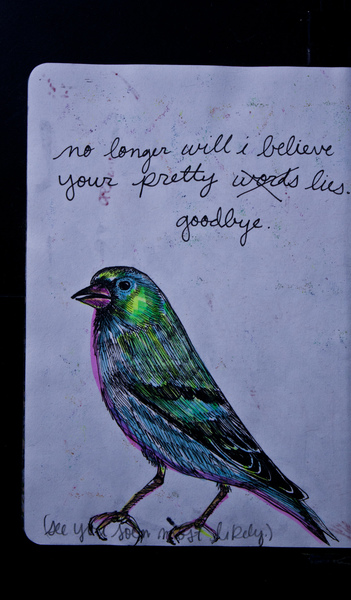 no longer will i believe
your pretty words lies.
goodbye.
(see you soon most likely.)